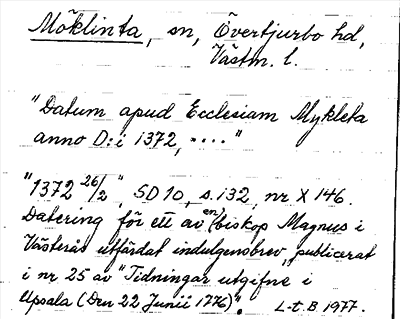 Möklinta, sn, Övertjurbo hd,
Västm. l.
"Datum apud Ecclesiam Mykleta
anno D:i 1372, ····"
"1372 26/2", SD 10, s. 132, nr X 146.
Datering för ett av (en) biskop Magnus i
Västerås utfärdat indulgensbrev, publicerat
i nr 25 av "Tidningar utgifne i
Upsala (Den 22 Junii 1776)". L-t. B. 1977.